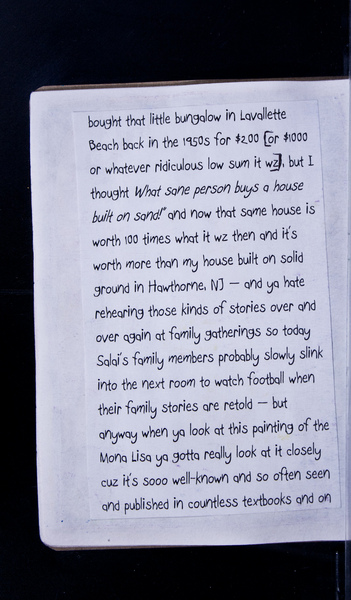 bought that little bungalow in Lavallette
Beach back in the 1950s for $200 [or $1000
or whatever ridiculous low sum it wz], but I
thought What sane person buys a house
built on sand!" and now that same house is
worth 100 times what it wz then and it's
worth more than my house built on solid
ground in Hawthorne, NJ — and ya hate
rehearing those kinds of stories over and
over again at family gatherings so today
Salai's family members probably slowly slink
into the next room to watch football when
their family stories are retold — but
anyway when ya look at this painting of the
Mona Lisa ya gotta really look at it closely
cuz it's sooo well-known and so often seen
and published in countless textbooks and on